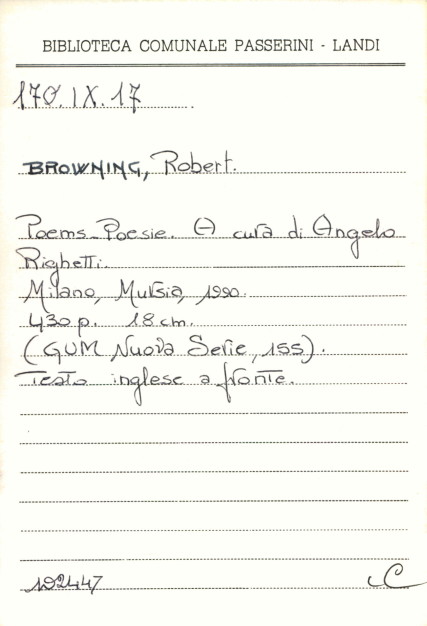 BIBLIOTECA COMUNALE PASSERINI - LANDI
170.IX.17
BROWNING, Robert.
Poems-Poesie. A cura di Angelo
Righetti.
Milano, Mursia, 1990.
430 p. 18 cm.
(GUM Nuova Serie, 155).
Testo inglese a fronte.
192447
C